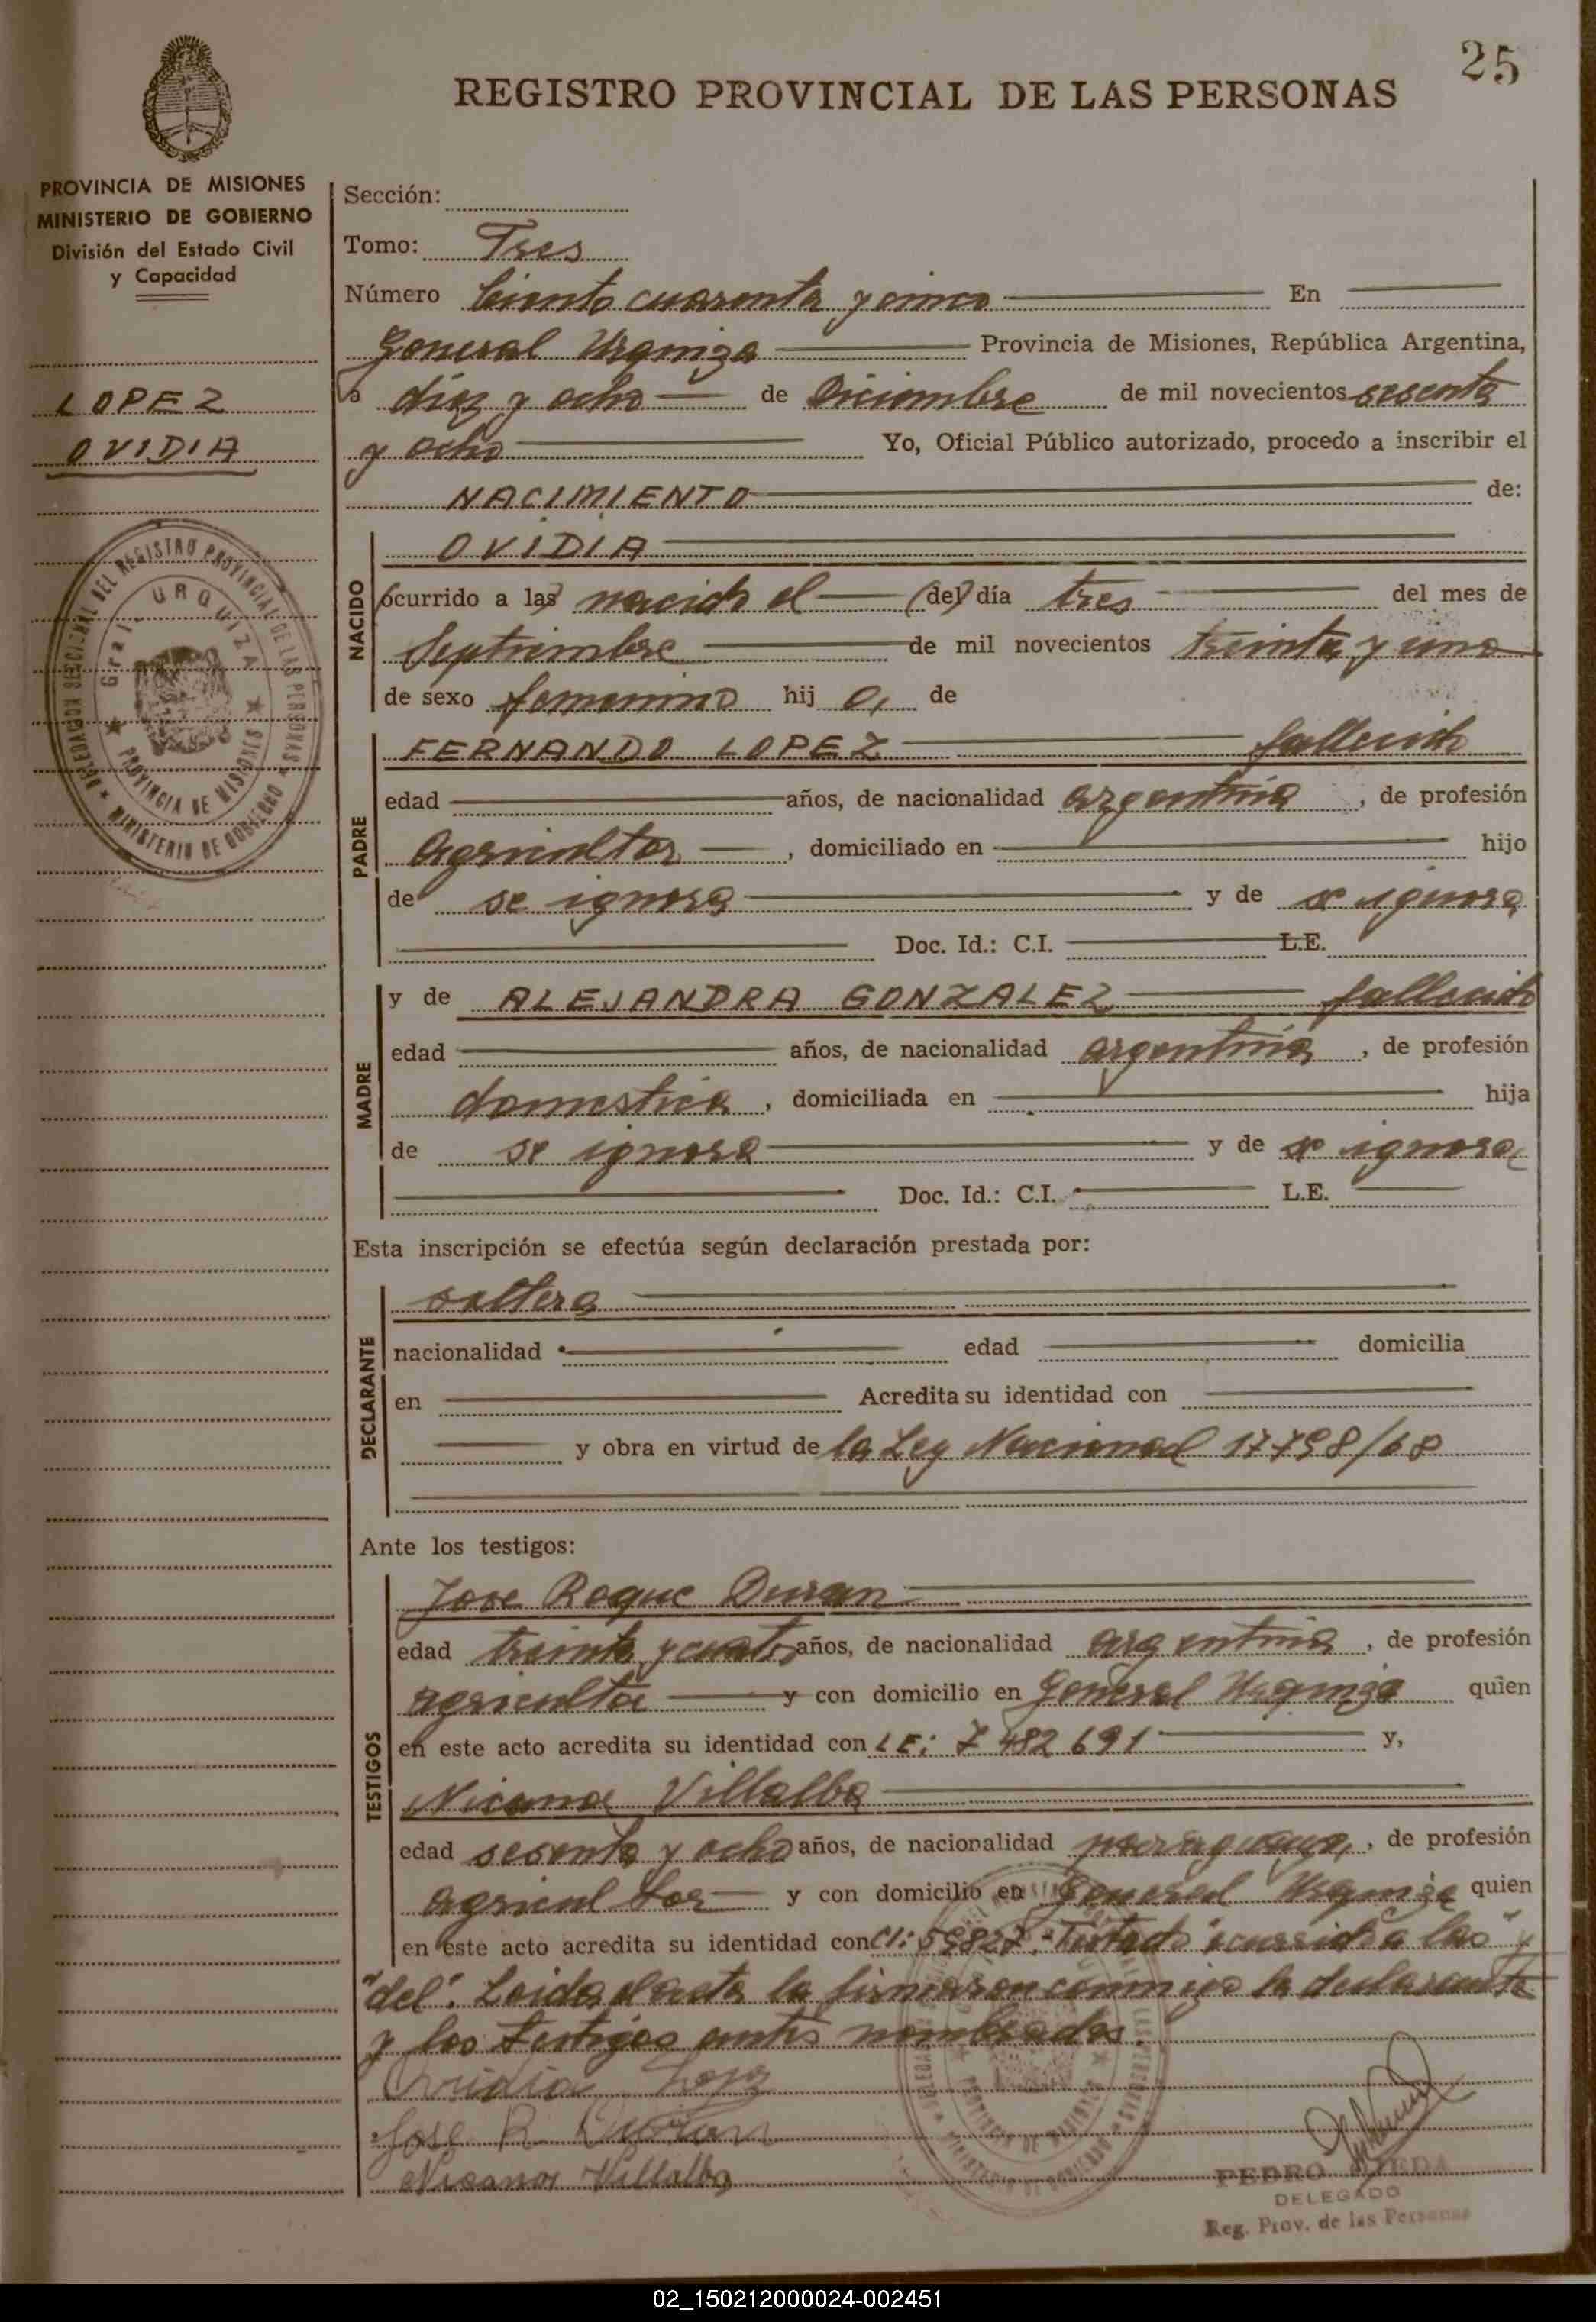 25
REGISTRO PROVINCIAL DE LAS PERSONAS
PROVINCIA DE MISIONES
MINISTERIO DE GOBIERNO
División del Estado Civil
y Capacidad
LOPEZ
OVIDIA
DELEGACION SECCIONAL DEL REGISTRO PROVINCIAL DE LAS PERSONAS
MINISTERIO DE GOBIERNO
Gral. URQUIZA
PROVINCIA DE MISIONES
Sección:
Tomo: Tres
Número Ciento cuarenta y cinco En
General Urquiza Provincia de Misiones, República Argentina,
a diez y ocho de Diciembre de mil novecientos sesenta
y ocho Yo, Oficial Público autorizado, procedo a inscribir el
NACIMIENTO de:
NACIDO
OVIDIA
ocurrido a las nacida el (del) día tres del mes de
Septiembre de mil novecientos treinta y uno
de sexo femenino hij a, de
PADRE
FERNANDO LOPEZ fallecido
edad años, de nacionalidad argentina, de profesión
Agricultor, domiciliado en hijo
de se ignora y de se ignora
Doc. Id.: C.I. L.E.
MADRE
y de ALEJANDRA GONZALEZ fallecida
edad años, de nacionalidad argentina, de profesión
domestica, domiciliada en hija
de se ignora y de se ignora
Doc. Id.: C.I. L.E.
Esta inscripción se efectúa según declaración prestada por:
DECLARANTE
soltera
nacionalidad edad domicilia
en Acredita su identidad con
y obra en virtud de la Ley Nacional 17798/68
Ante los testigos:
TESTIGOS
Jose Roque Duran
edad treinta y cuatro años, de nacionalidad argentina, de profesión
agricultor y con domicilio en General Urquiza quien
en este acto acredita su identidad con LE: 7 482 691 y,
Nicanor Villalba
edad sesenta y ocho años, de nacionalidad paraguaya, de profesión
agricultor y con domicilio en General Urquiza quien
en este acto acredita su identidad con CI: 59827. Testado "ocurrido a las" y
"del". Leida el acta la firmaron conmigo la declarante
y los testigos antes nombrados.
Ovidia Lopez
Jose R Duran
Nicanor Villalba
PEDRO OJEDA
DELEGADO
Reg. Prov. de las Personas
02_150212000024-002451